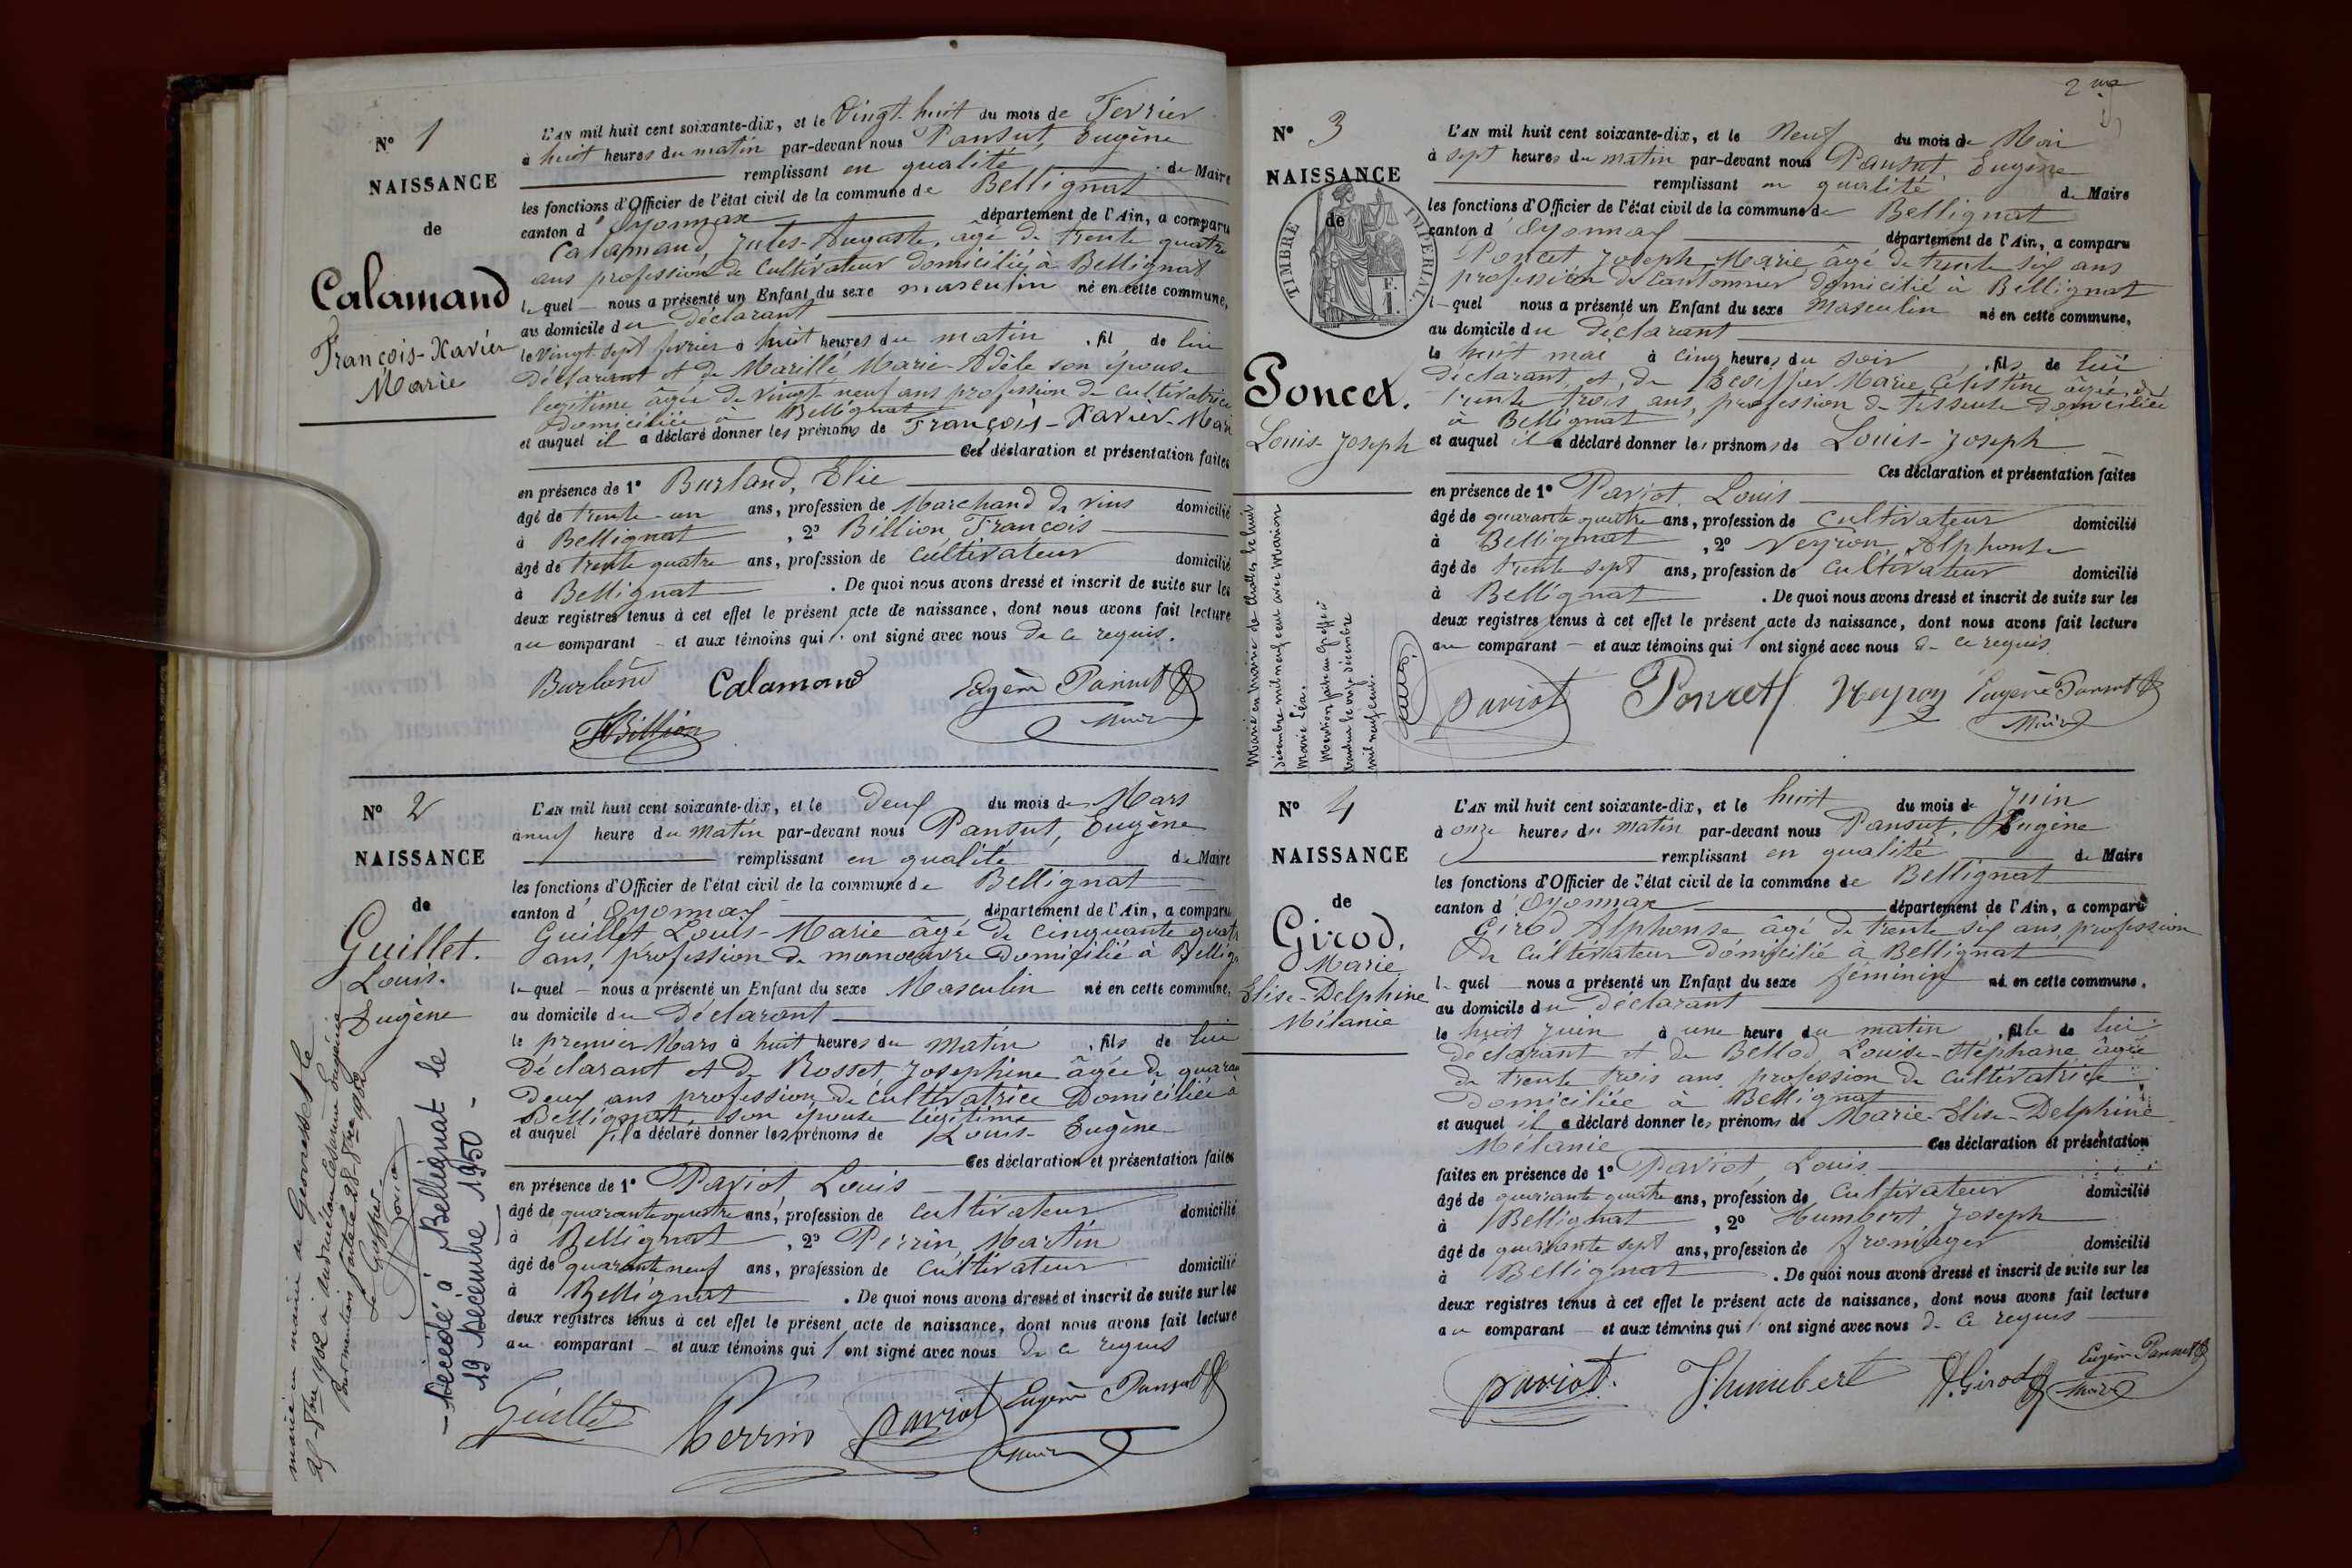 N° 1
NAISSANCE
de
Calamand
François-Xavier
Marie
L'AN mil huit cent soixante-dix, et le Vingt-huit du mois de Fevrier
à huit heures du matin par-devant nous Pansut, Eugène
remplissant en qualité de Maire
les fonctions d'Officier de l'état civil de la commune de Bellignat
canton d'Oyonnax département de l'Ain, a comparu
Calamand, Jules-Auguste, agé de trente quatre
ans profession de Cultivateur domicilié à Bellignat
lequel nous a présenté un Enfant du sexe masculin né en cette commune,
au domicile du Déclarant
le vingt-sept fevrier à huit heures du matin, fil de lui
Déclarant et de Marillé Marie-Adèle son épouse
legitime âgée de vingt-neuf ans profession de cultivatrice
Domiciliée à Bellignat
et auquel il a déclaré donner les prénoms de François-Xavier-Mari
Ces déclaration et présentation faites
en présence de 1° Burland, Elie
âgé de trente-un ans, profession de Marchand de vins domicilié
à Bellignat, 2° Billion François
âgé de trente quatre ans, profession de cultivateur domicilié
à Bellignat. De quoi nous avons dressé et inscrit de suite sur les
deux registres tenus à cet effet le présent acte de naissance, dont nous avons fait lecture
au comparant et aux témoins qui ont signé avec nous de ce requis.
Burland Calamand Eugène Pansut
Billion Maire
N° 2
NAISSANCE
de
Guillet.
Louis-
Eugène
marié en mairie de Geovresset le
25-8bre 1902 à
Pour mention faite le 28-8bre 1902
Le Greffier
Décédé à Bellignat le
19 Décembre 1950-
L'AN mil huit cent soixante-dix, et le deux du mois de Mars
à neuf heure du matin par-devant nous Pansut, Eugène
remplissant en qualité de Maire
les fonctions d'Officier de l'état civil de la commune de Bellignat
canton d'Oyonnax département de l'Ain, a comparu
Guillet Louis-Marie âgé de cinquante quatr
ans, profession de manoeuvre Domicilié à Bellign
lequel nous a présenté un Enfant du sexe Masculin né en cette commune,
au domicile du Déclarant
le premier Mars à huit heures du matin, fils de lui
Déclarant et de Rosset Josephine âgée de quaran
deux ans profession de cultivatrice Domiciliée à
Bellignat, son épouse légitime
et auquel il a déclaré donner les prénoms de Louis-Eugène
Ces déclaration et présentation faites
en présence de 1° Pariot, Louis
âgé de quarante quatre ans, profession de cultivateur domicilié
à Bellignat, 2° Perrin, Martin
âgé de quarante neuf ans, profession de Cultivateur domicilié
à Bellignat. De quoi nous avons dressé et inscrit de suite sur les
deux registres tenus à cet effet le présent acte de naissance, dont nous avons fait lecture
au comparant et aux témoins qui ont signé avec nous de ce requis
Guillet Perrin Pariot Eugène Pansut
Maire
N° 3
NAISSANCE
de
TIMBRE IMPÉRIAL.
F.
1.
Poncet.
Louis-Joseph
Marié en mairie de le huit
décembre mil neuf cent avec Marion
Marie Léa.
Mention faite au greffe à
Nantua le onze décembre
mil neuf cent.
L'AN mil huit cent soixante-dix, et le Neuf du mois de Mai
à sept heures du matin par-devant nous Pansut, Eugène
remplissant en qualité de Maire
les fonctions d'Officier de l'état civil de la commune de Bellignat
canton d'Oyonnax département de l'Ain, a comparu
Poncet Joseph-Marie âgé de trente six ans
profession de Cantonnier domicilié à Bellignat
lequel nous a présenté un Enfant du sexe Masculin né en cette commune,
au domicile du déclarant
le huit mai à cinq heures du soir, fils de lui
déclarant et de Marie Célestine âgée de
trente trois ans, profession de domiciliée
à Bellignat
et auquel il a déclaré donner les prénoms de Louis-Joseph
Ces déclaration et présentation faites
en présence de 1° Pariot, Louis
âgé de quarante quatre ans, profession de cultivateur domicilié
à Bellignat, 2° Neyron, Alphonse
âgé de trente sept ans, profession de cultivateur domicilié
à Bellignat. De quoi nous avons dressé et inscrit de suite sur les
deux registres tenus à cet effet le présent acte de naissance, dont nous avons fait lecture
au comparant et aux témoins qui ont signé avec nous de ce requis
Pariot Poncet Neyron Eugène Pansut
Maire
N° 4
NAISSANCE
de
Girod,
Marie
Elise-Delphine
Mélanie
L'AN mil huit cent soixante-dix, et le huit du mois de Juin
à onze heures du matin par-devant nous Pansut, Eugène
remplissant en qualité de Maire
les fonctions d'Officier de l'état civil de la commune de Bellignat
canton d'Oyonnax département de l'Ain, a comparu
Girod Alphonse âgé de trente six ans, profession
de cultivateur domicilié à Bellignat
lequel nous a présenté un Enfant du sexe féminin né en cette commune,
au domicile du Déclarant
le huit Juin à une heure du matin, fille de lui
déclarant et de Bellod, Louise-Stéphanie, âgée
de trente trois ans profession de cultivatrice
Domiciliée à Bellignat
et auquel il a déclaré donner les prénoms de Marie-Elise-Delphine
Mélanie Ces déclaration et présentation
faites en présence de 1° Pariot, Louis
âgé de quarante quatre ans, profession de Cultivateur domicilié
à Bellignat, 2° Humbert, Joseph
âgé de quarante sept ans, profession de fromager domicilié
à Bellignat. De quoi nous avons dressé et inscrit de suite sur les
deux registres tenus à cet effet le présent acte de naissance, dont nous avons fait lecture
au comparant et aux témoins qui ont signé avec nous de ce requis
Pariot. J. humbert A. Girod Eugène Pansut
Maire